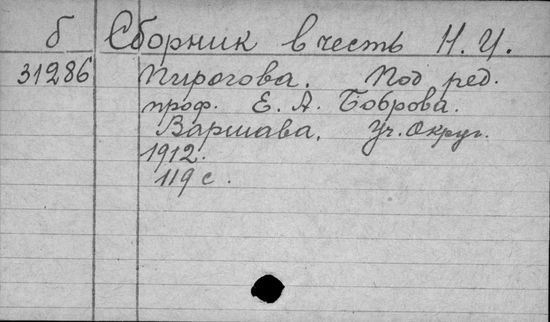 б Сборник в честь Н. И.
31286 Пирогова. Под ред.
проф. Е. А. Боброва.
Варшава, Уч. Округ.
1912.
119 с.